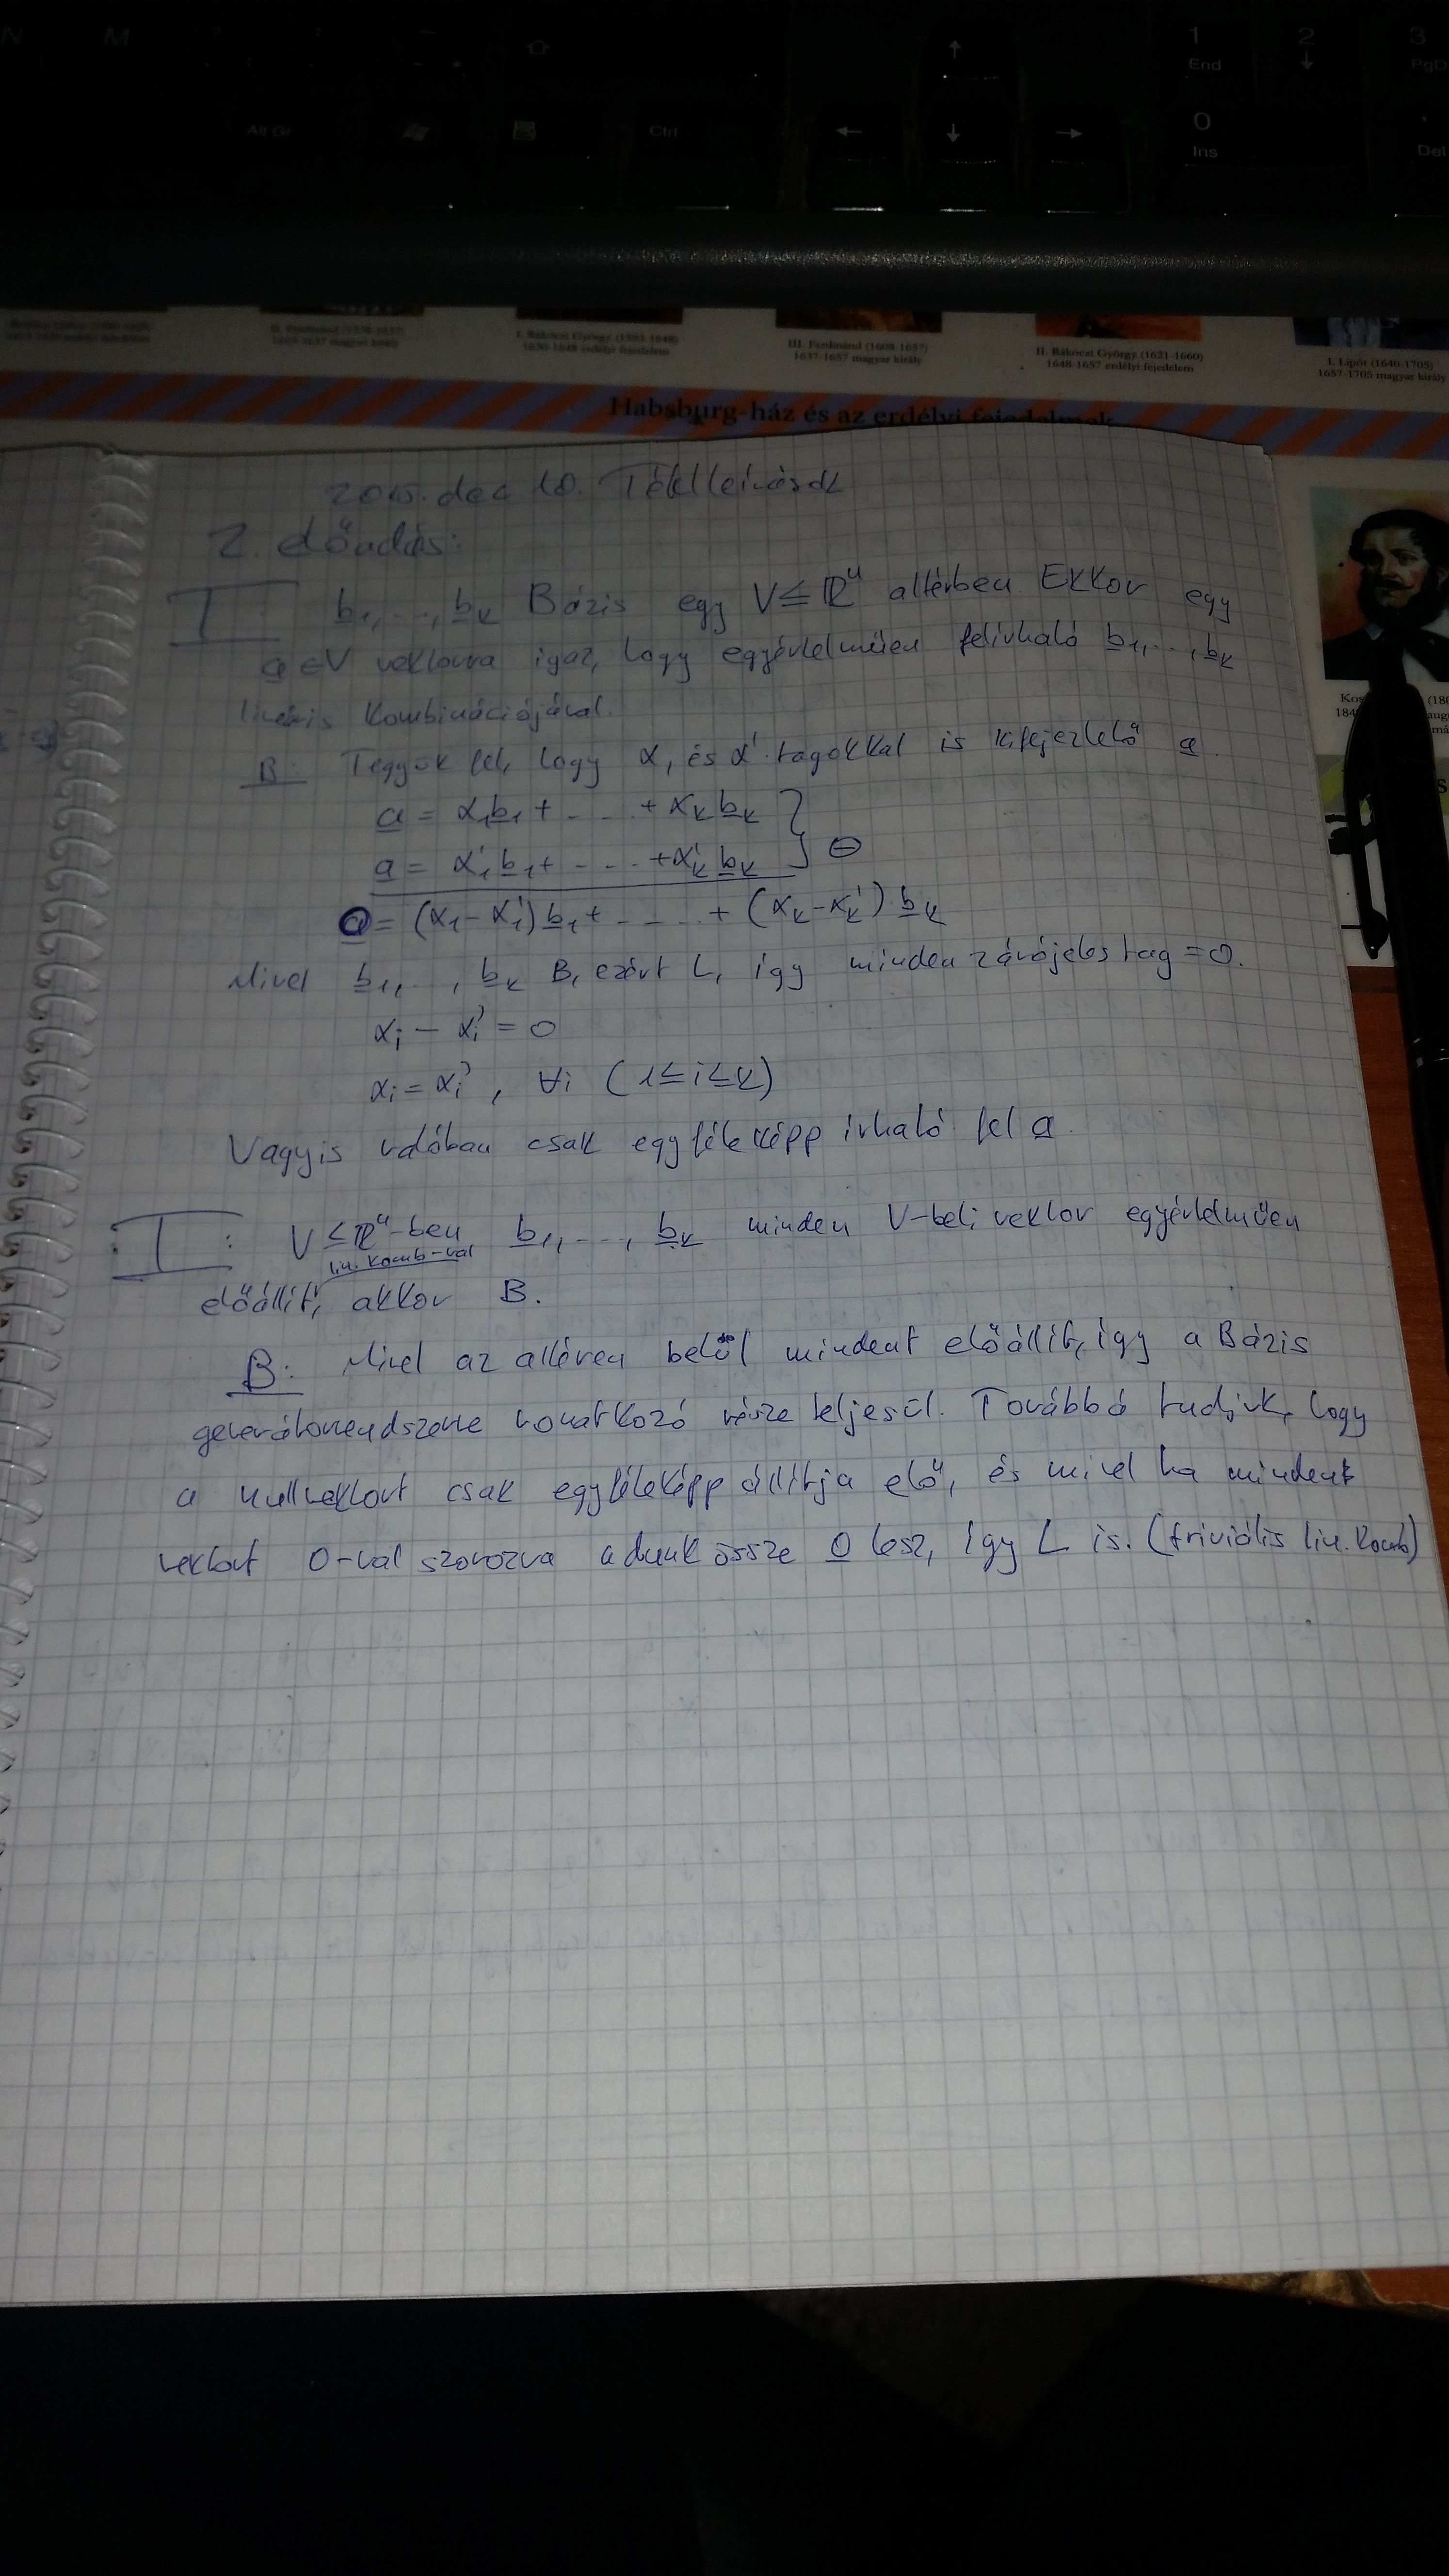 N M
1 End
2
3 PgD
Alt Gr
Ctrl
0 Ins
Del
I. Rákóczi György (1593-1648)
1630-1648 erdélyi fejedelem
III. Ferdinánd (1608-1657)
1637-1657 magyar király
II. Rákóczi György (1621-1660)
1648-1657 erdélyi fejedelem
I. Lipót (1640-1705)
1657-1705 magyar király
Habsburg-ház és az erdélyi fejedelmek
dec 10. Tétel leírások
2. előadás:
T b₁,...,bₖ Bázis egy V≤ℝⁿ altérben Ekkor egy
a∈V vektorra igaz, hogy egyértelműen felírható b₁,...,bₖ
lineáris kombinációjával.
B: Tegyük fel, hogy α, és α' tagokkal is kifejezhető a.
a = α₁b₁+ ... + αₖbₖ
a = α'₁b₁+ ... +α'ₖbₖ } ⊖
0 = (α₁-α'₁)b₁+ ... + (αₖ-α'ₖ)·bₖ
Mivel b₁,...,bₖ B, ezért L, így minden zárójeles tag =0.
αᵢ - αᵢ' = 0
αᵢ = αᵢ' , ∀i (1≤i≤k)
Vagyis valóban csak egyféleképp írható fel a.
T: V≤ℝⁿ-ben b₁,...,bₖ minden V-beli vektor egyértelműen
lin. komb-val
előállít, akkor B.
B: Mivel az altéren belül mindent előállít, így a Bázis
generátorrendszerre vonatkozó része teljesül. Továbbá tudjuk, hogy
a nullvektort csak egyféleképp állítja elő, és mivel ha mindent
vektort 0-val szorozva adunk össze 0 lesz, így L is. (triviális lin. komb)